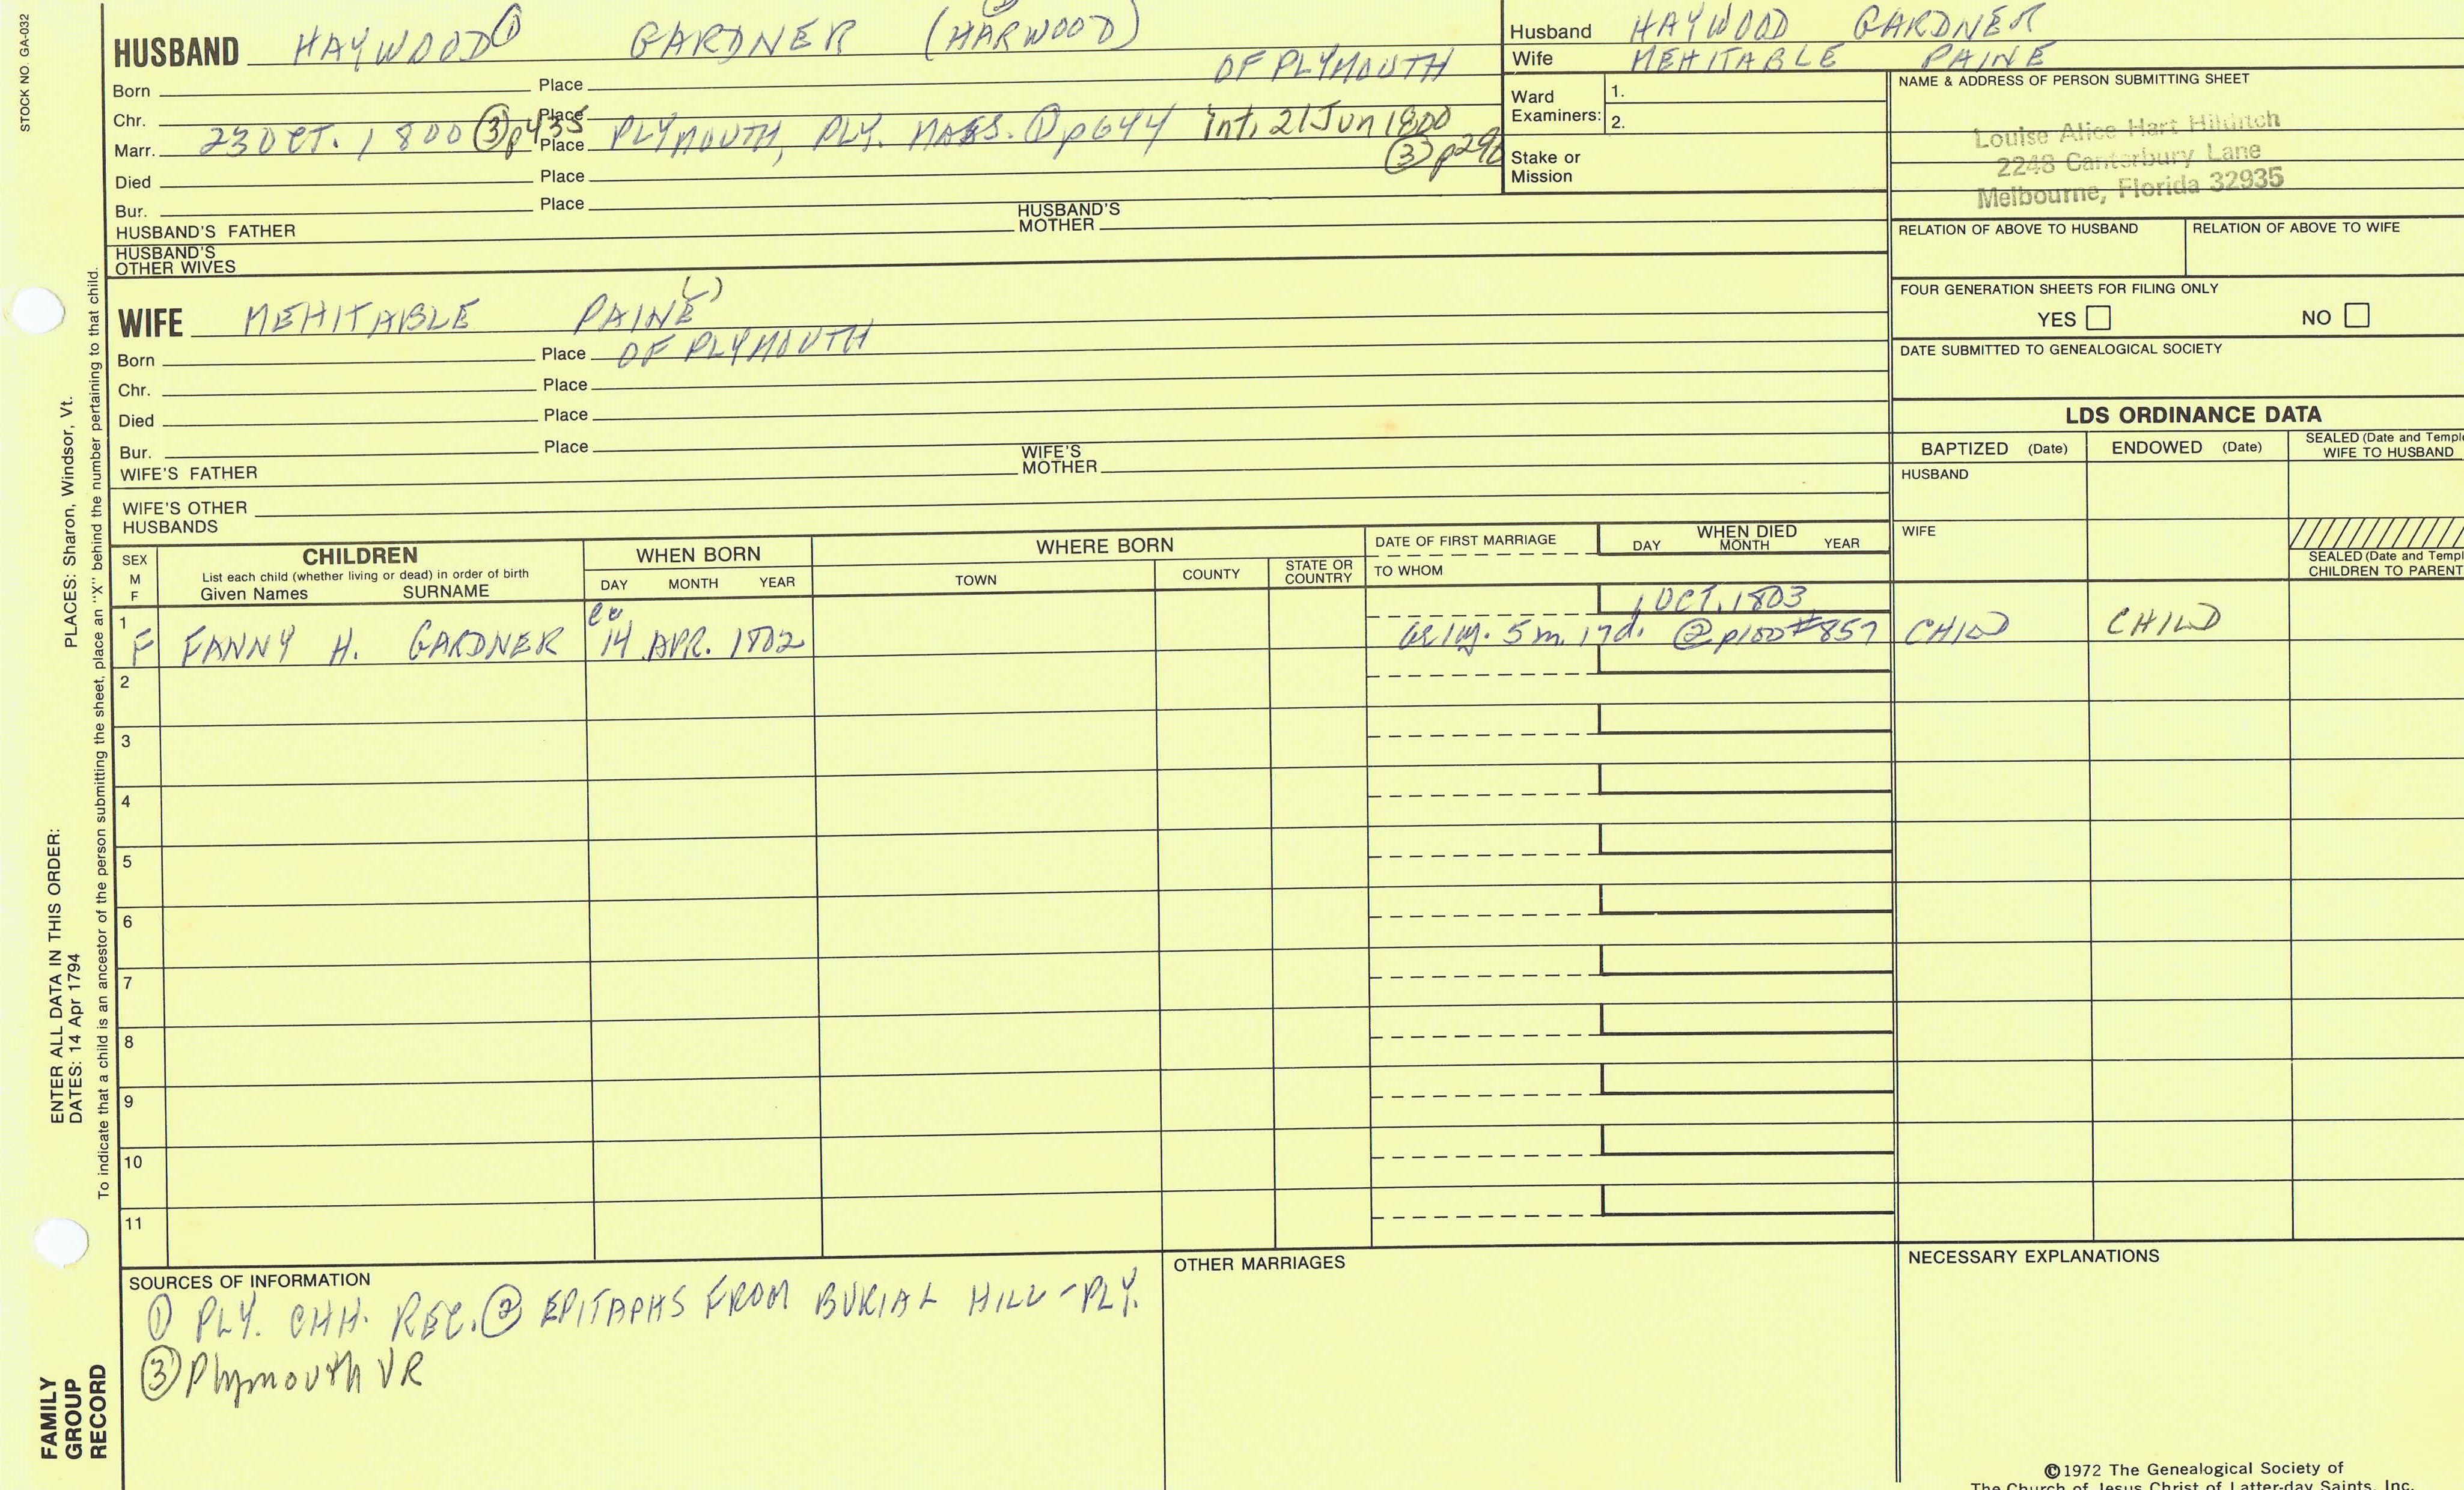 STOCK NO. GA-032
HUSBAND HAYWOOD ① GARDNER (HARWOOD)
OF PLYMOUTH
Born Place
Chr. Place
Marr. 23 OCT. 1800 ③ p435 Place PLYMOUTH, PLY. MASS. ① p644 int. 21 Jun 1800
③
Died Place
Bur. Place
HUSBAND'S FATHER HUSBAND'S MOTHER
HUSBAND'S OTHER WIVES
Husband HAYWOOD GARDNER
Wife MEHITABLE PAINE
Ward Examiners: 1.
2.
Stake or Mission
NAME & ADDRESS OF PERSON SUBMITTING SHEET
Louise Alice Hart Hilditch
2248 Canterbury Lane
Melbourne, Florida 32935
RELATION OF ABOVE TO HUSBAND RELATION OF ABOVE TO WIFE
FOUR GENERATION SHEETS FOR FILING ONLY
YES NO
DATE SUBMITTED TO GENEALOGICAL SOCIETY
WIFE MEHITABLE PAINE
Born Place OF PLYMOUTH
Chr. Place
Died Place
Bur. Place
WIFE'S FATHER WIFE'S MOTHER
WIFE'S OTHER HUSBANDS
LDS ORDINANCE DATA
BAPTIZED (Date) ENDOWED (Date) SEALED (Date and Templ
WIFE TO HUSBAND
HUSBAND
WIFE
SEALED (Date and Templ
CHILDREN TO PARENT
SEX M F
CHILDREN
List each child (whether living or dead) in order of birth
Given Names SURNAME
WHEN BORN
DAY MONTH YEAR
WHERE BORN
TOWN COUNTY STATE OR COUNTRY
DATE OF FIRST MARRIAGE
TO WHOM
WHEN DIED
DAY MONTH YEAR
1 OCT. 1803
1 F FANNY H. GARDNER 14 APR. 1802 ae 1y. 5m. 17d. ② p100 #857 CHILD CHILD
2
3
4
5
6
7
8
9
10
11
SOURCES OF INFORMATION
① PLY. CHH. REC. ② EPITAPHS FROM BURIAL HILL - PLY.
③ Plymouth VR
OTHER MARRIAGES
NECESSARY EXPLANATIONS
©1972 The Genealogical Society of
The Church of Jesus Christ of Latter-day Saints, Inc.
FAMILY
GROUP
RECORD
ENTER ALL DATA IN THIS ORDER:
DATES: 14 Apr 1794
PLACES: Sharon, Windsor, Vt.
To indicate that a child is an ancestor of the person submitting the sheet, place an "X" behind the number pertaining to that child.